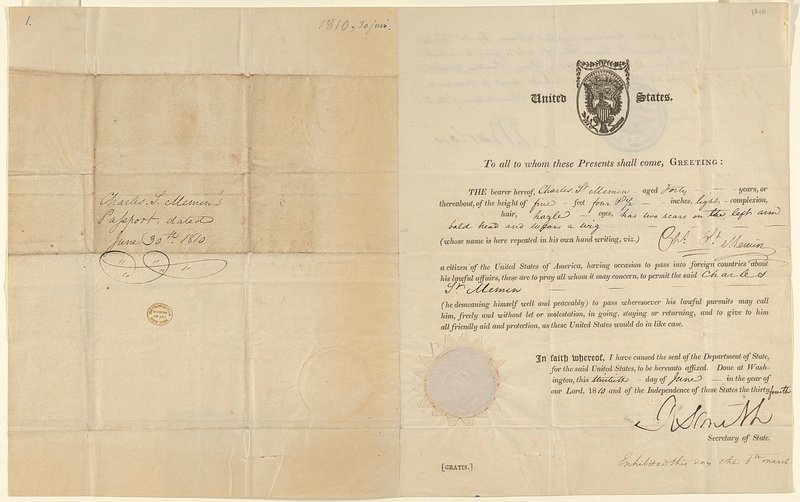 1.
1810, 30 juin.
Charles. S. Memin's
Passport dated
June 30th. 1810
METROPOLITAN
MUSEUM
OF ART
NEW YORK
1810
United States.
To all to whom these Presents shall come, GREETING:
THE bearer hereof, Charles St Memin - aged Forty — years, or
thereabout, of the height of five - feet four & ½ - inches, light, - complexion,
hair, hazle — eyes, has two scars on the left arm
bald head and wears a wig
(whose name is here repeated in his own hand writing, viz.) St. Memin
a citizen of the United States of America, having occasion to pass into foreign countries about
his lawful affairs, these are to pray all whom it may concern, to permit the said Charles
St Memin
(he demeaning himself well and peaceably) to pass wheresoever his lawful pursuits may call
him, freely and without let or molestation, in going, staying or returning, and to give to him
all friendly aid and protection, as these United States would do in like case.
In faith whereof, I have caused the seal of the Department of State,
for the said United States, to be hereunto affixed. Done at Wash-
ington, this thirtieth - day of June — in the year of
our Lord, 1810 and of the Independence of these States the thirty fourth
R Smith
Secretary of State.
[GRATIS.]
Exhibited this day the 5th march